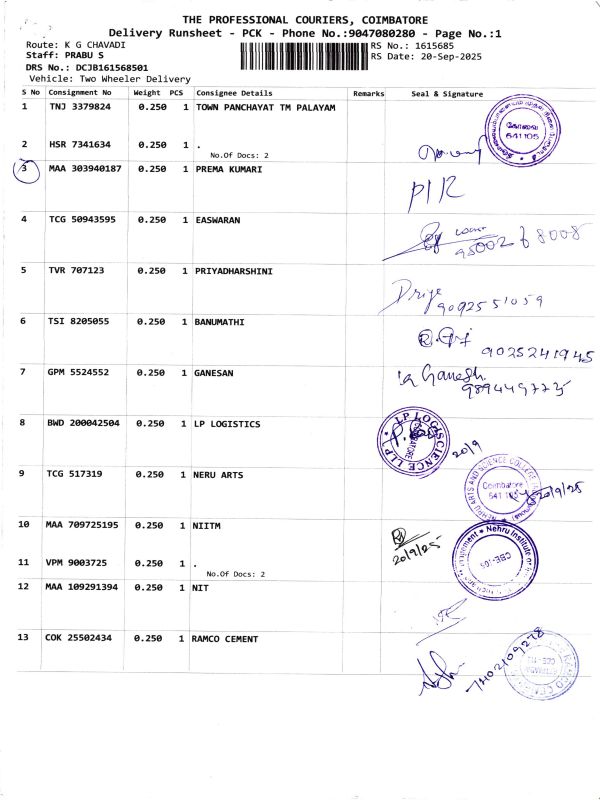 THE PROFESSIONAL COURIERS, COIMBATORE
Delivery Runsheet - PCK - Phone No.:9047080280 - Page No.:1
Route: K G CHAVADI
RS No.: 1615685
Staff: PRABU S
RS Date: 20-Sep-2025
DRS No.: DCJB161568501
Vehicle: Two Wheeler Delivery
S No Consignment No Weight PCS Consignee Details Remarks Seal & Signature
1 TNJ 3379824 0.250 1 TOWN PANCHAYAT TM PALAYAM
கோவை
641 105
2 HSR 7341634 0.250 1 .
No.Of Docs: 2
3 MAA 303940187 0.250 1 PREMA KUMARI
4 TCG 50943595 0.250 1 EASWARAN
5 TVR 707123 0.250 1 PRIYADHARSHINI
9092551059
6 TSI 8205055 0.250 1 BANUMATHI
9025241945
7 GPM 5524552 0.250 1 GANESAN
Ganesh
8 BWD 200042504 0.250 1 LP LOGISTICS
LP LOGISCIENCE LLP
20/9
9 TCG 517319 0.250 1 NERU ARTS
NEHRU ARTS AND SCIENCE COLLEGE
Coimbatore
641 105
20/9/25
10 MAA 709725195 0.250 1 NIITM
20/9/25
Nehru Institute of
CBE-105
11 VPM 9003725 0.250 1 .
No.Of Docs: 2
12 MAA 109291394 0.250 1 NIT
13 COK 25502434 0.250 1 RAMCO CEMENT